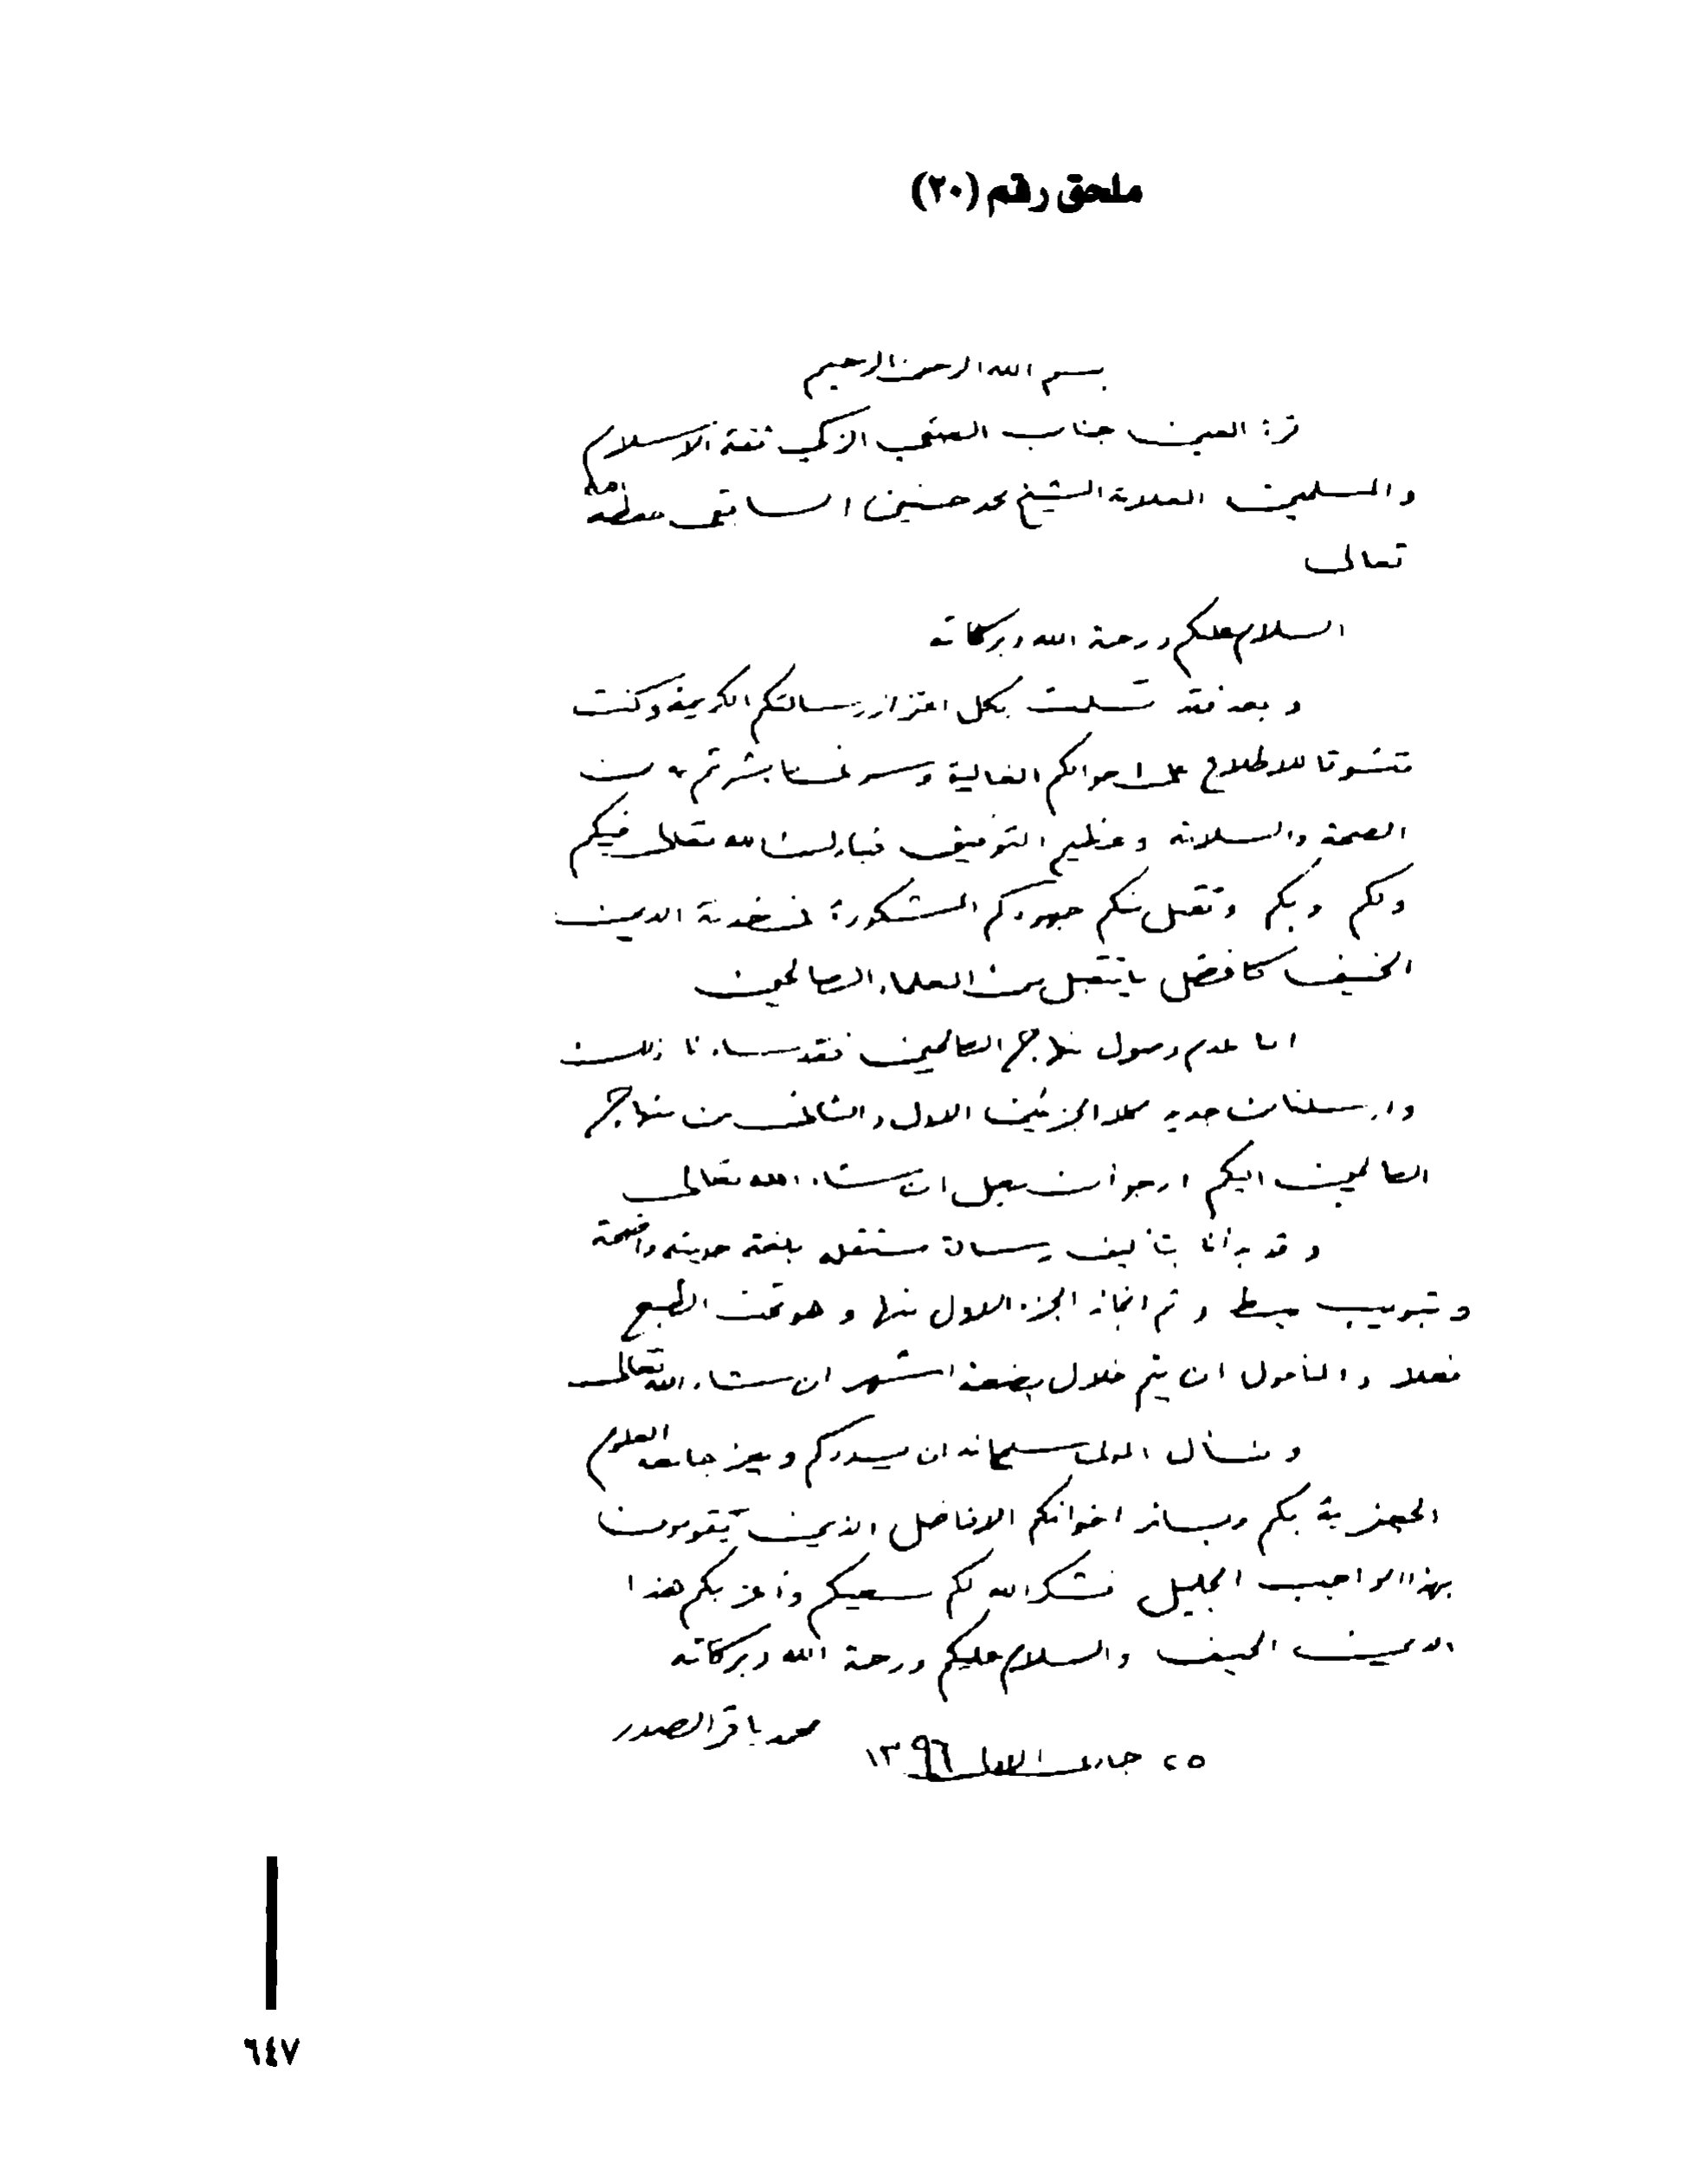 ملحق رقم (٢٠)
بسم الله الرحمن الرحيم
قرة العين جناب الصفي الزكي ثقة الاسلام
والمسلمين العلامة الشيخ محمد حسنين السابقي حفظه الله
تعالى
السلام عليكم ورحمة الله وبركاته
وبعد فقد تسلمت بكل اعتزاز رسالتكم الكريمة وكنت
متشوقا للاطلاع على احوالكم الغالية وسرني ما بشرتم به من
الصحة والسلامة وعظيم التوفيق فبارك الله تعالى فيكم
ولكم وبكم وتقبل منكم جهودكم المشكورة في خدمة الدين
الحنيف كافضل ما يتقبل من العلماء الصالحين
اما عدم وصول منهاج الصالحين فقد ساءنا ذلك
وارسلنا من جديد كلا الجزئين الاول والثاني من منهاج
الصالحين اليكم ارجو أن يصل ان شاء الله تعالى
وقد بدأنا بتأليف رسالة مستقلة بلغة حديثة واضحة
وتبويب مبسط وتم انجاز الجزء الاول منها وهو تحت الطبع
فعلا والمأمول ان يتم خلال بضعة اشهر ان شاء الله تعالى
ونسأل المولى سبحانه ان يسددكم ويعز جامعة العلوم
الجعفرية بكم وبسائر اخوانكم الافاضل الذين يقومون
بهذا الواجب الجليل فشكر الله لكم سعيكم وأعز بكم هذا
الدين الحنيف والسلام عليكم ورحمة الله وبركاته
محمد باقر الصدر
٢٥ جمادى الاولى ١٣٩٦
٦٤٧